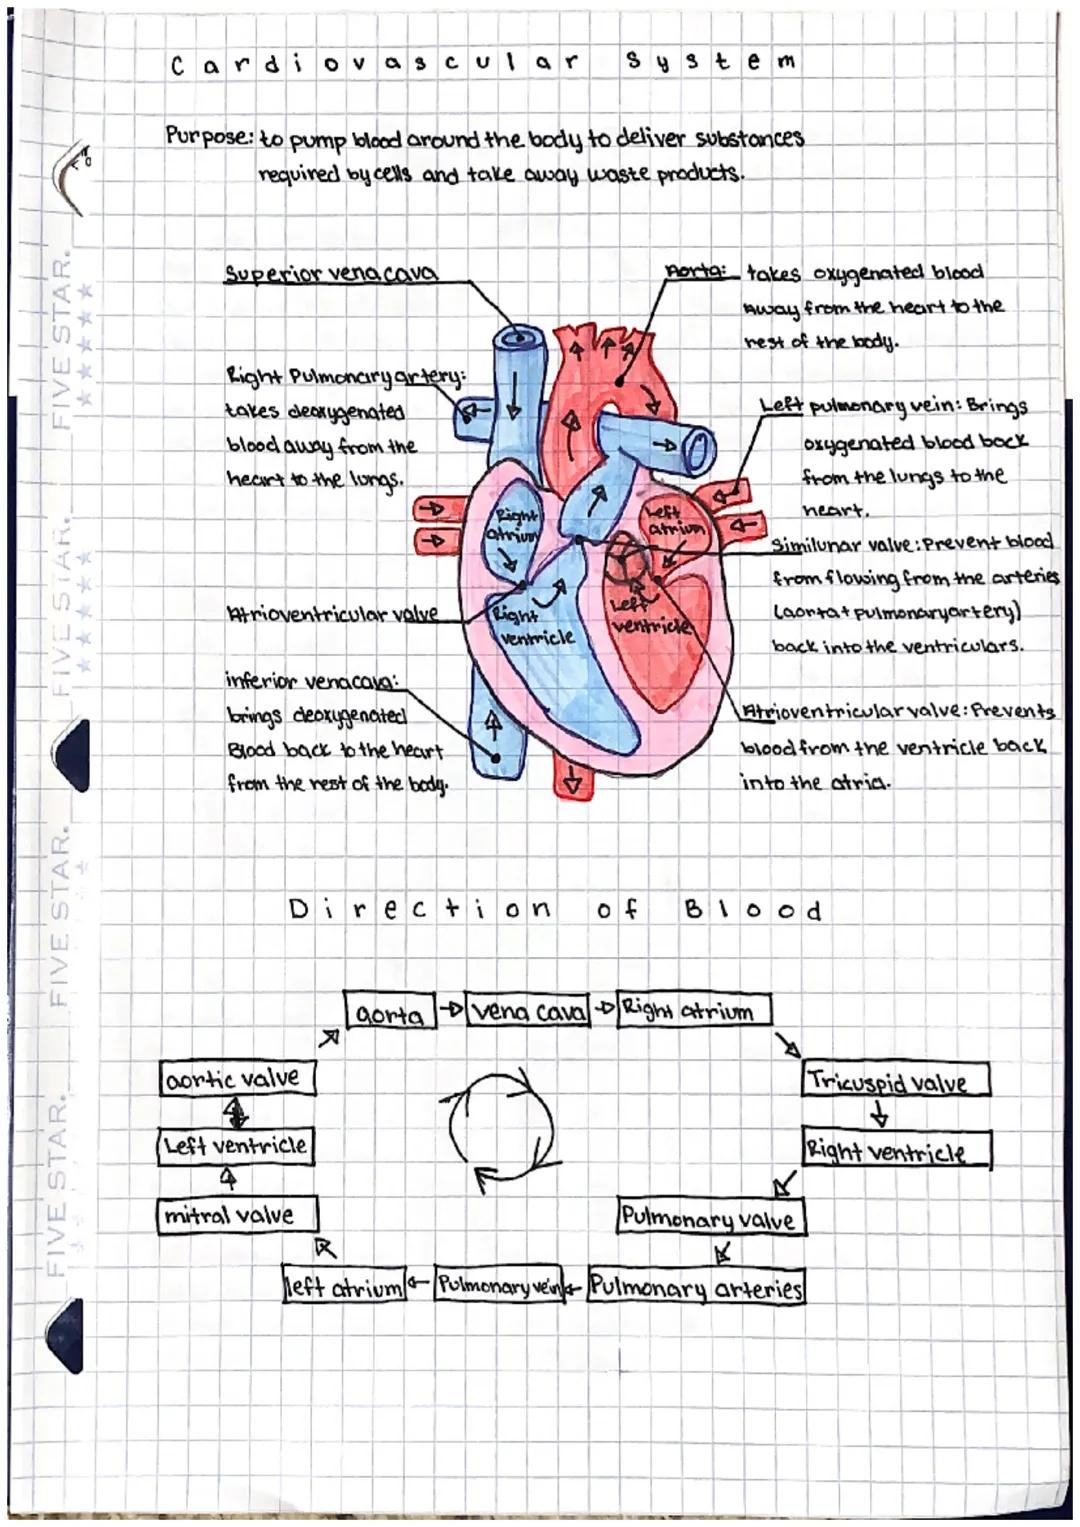 Cardiovascular System
Purpose: to pump blood around the body to deliver substances
required by cells and take away waste products.
Superior vena cava
Aorta: takes oxygenated blood
away from the heart to the
rest of the body.
Right Pulmonary artery:
takes deoxygenated
blood away from the
heart to the lungs.
Left pulmonary vein: Brings
oxygenated blood back
from the lungs to the
heart.
Right
atrium
Left
atrium
Similunar valve: Prevent blood
from flowing from the arteries
(aorta + pulmonary artery)
back into the ventriculars.
Atrioventricular valve
Right
ventricle
Left
ventricle
inferior vena cava:
brings deoxygenated
Blood back to the heart
from the rest of the body.
Atrioventricular valve: Prevents
blood from the ventricle back
into the atria.
Direction of Blood
aorta
vena cava
Right atrium
Tricuspid valve
Right ventricle
Pulmonary valve
Pulmonary arteries
Pulmonary vein
left atrium
mitral valve
Left ventricle
aortic valve
FIVE STAR.
FIVE STAR.
FIVE STAR.
FIVE STAR.